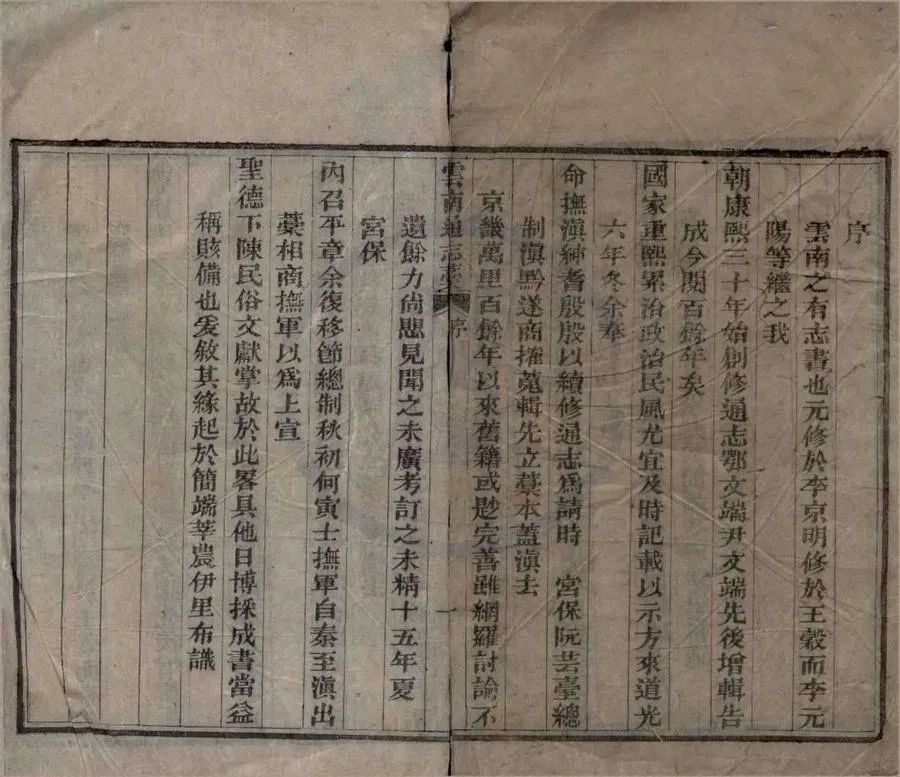 序
雲南之有志書也元修於李京明修於王穀而李元
陽等繼之我
朝康熙三十年始創修通志鄂文端尹文端先後增輯告
成今閱百餘年矣
國家重熙累治政治民風尤宜及時記載以示方來道光
六年冬余奉
命撫滇紳耆殷殷以續修通志爲請時 宮保阮芸臺總
制滇黔遂商搉蒐輯先立藁本蓋滇去
京畿萬里百餘年以來舊籍或尠完善雖網羅討論不
雲南通志藁 序 一
遺餘力尙悲見聞之未廣考訂之未精十五年夏
宮保
內召平章余復移節總制秋初何寅士撫軍自秦至滇出
藁相商撫軍以爲上宣
聖德下陳民俗文獻掌故於此畧具他日博採成書當益
稱賅備也爰敘其緣起於簡端莘農伊里布識